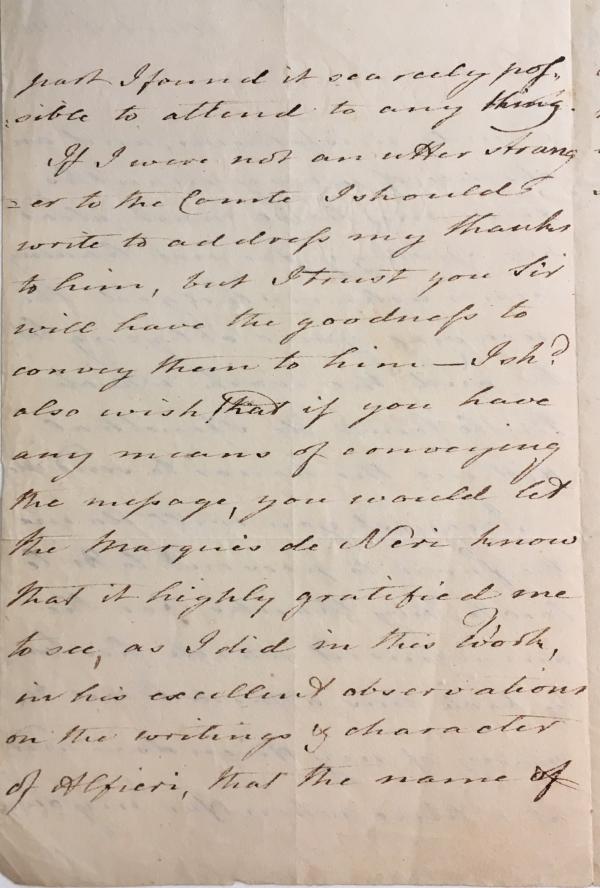 part I found it scarcely pos=
=sible to attend to any thing.
If I were not an utter strang
=er to the Comte I should
write to address my thanks
to him, but I trust you Sir
will have the goodness to
convey them to him — I shd
also wish that if you have
any means of conveying
the message, you would let
the Marquis de Neri know
that it highly gratified me
to see, as I did in this Work,
in his excellent observations
on the writings & character
of Alfieri, that the name of